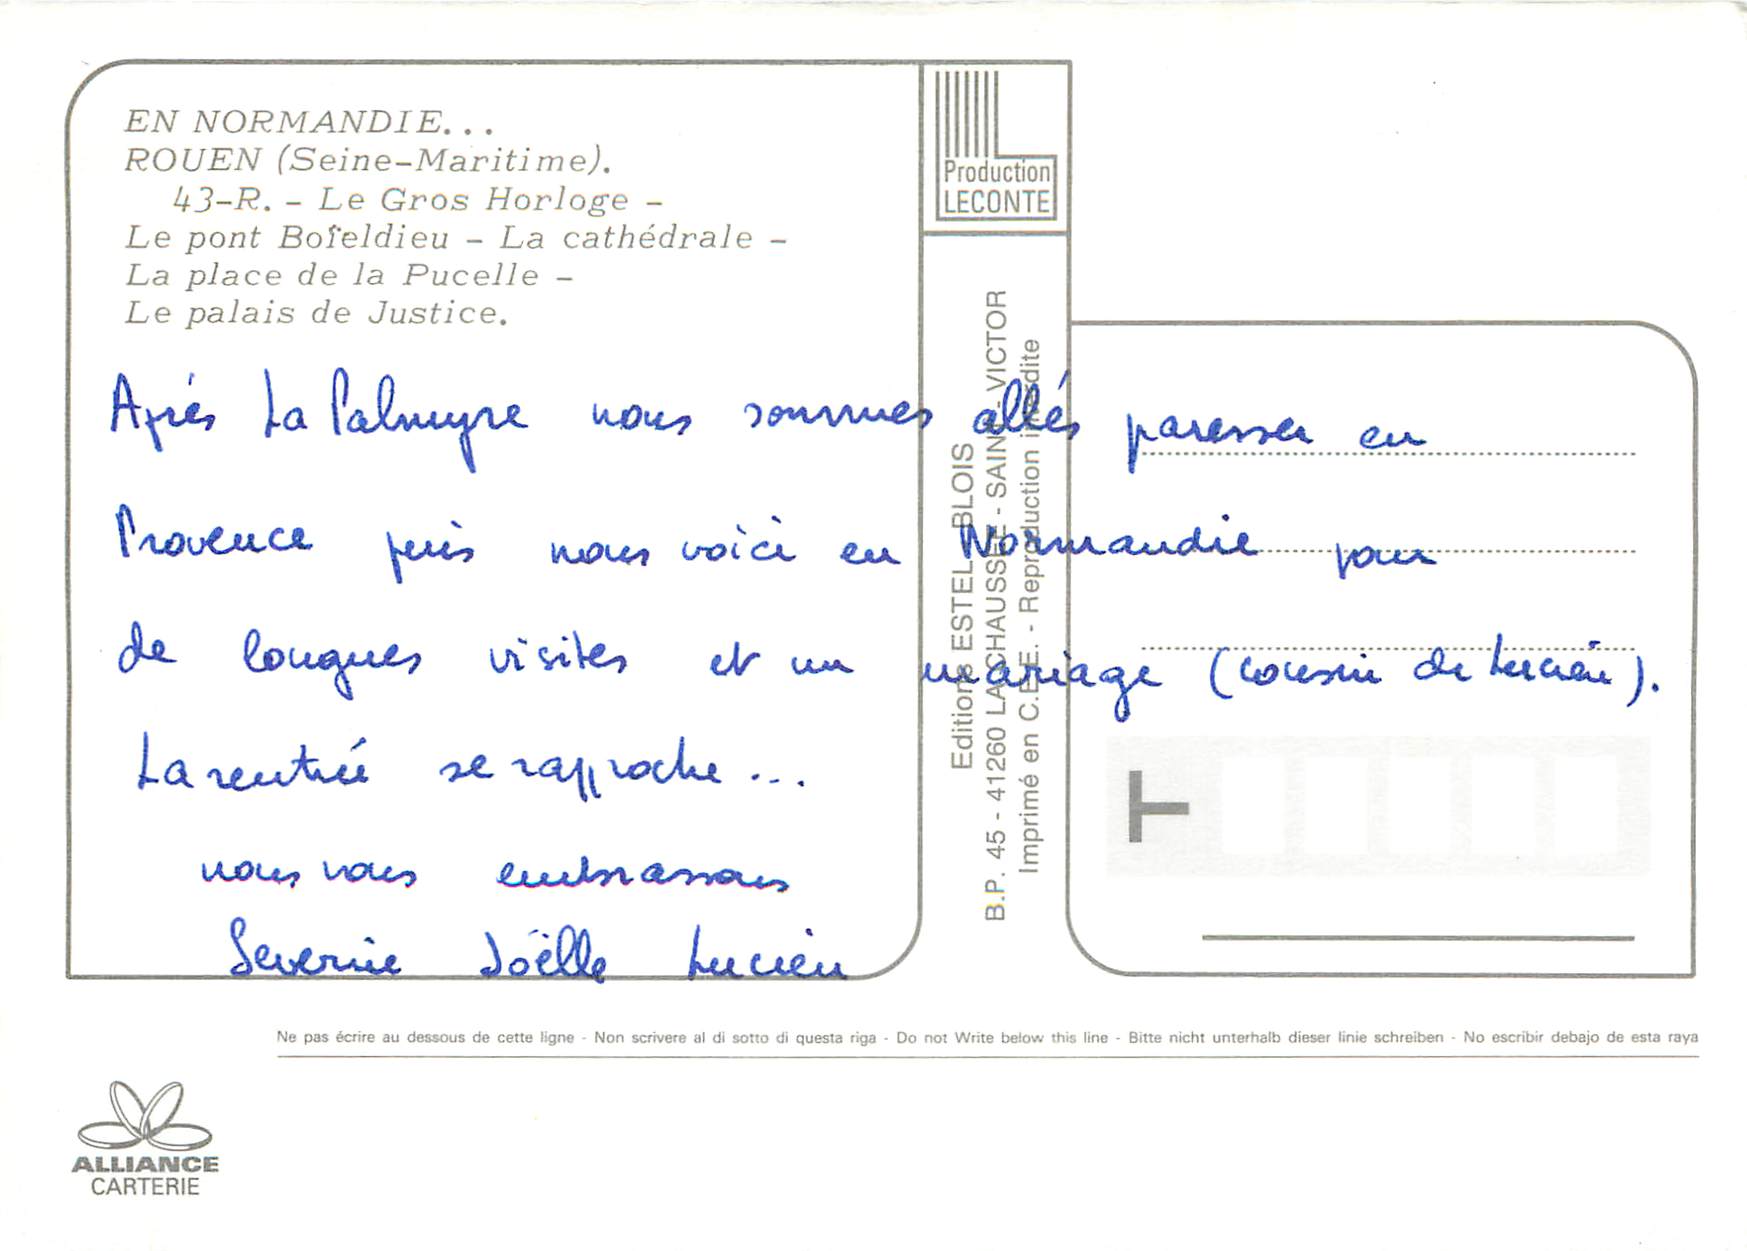 EN NORMANDIE...
ROUEN (Seine-Maritime).
43-R. - Le Gros Horloge -
Le pont Boïeldieu - La cathédrale -
La place de la Pucelle -
Le palais de Justice.
Production
LECONTE
Editions ESTEL-BLOIS
B.P. 45 - 41260 LA CHAUSSEE - SAINT-VICTOR
Imprimé en C.E.E. - Reproduction interdite
Après La Palmyre nous sommes allés paresser en
Provence puis nous voici en Normandie pour
de longues visites et un mariage (cousin de Lucien).
La rentrée se rapproche...
nous vous embrassons
Severine Joëlle Lucien
T
Ne pas écrire au dessous de cette ligne - Non scrivere al di sotto di questa riga - Do not Write below this line - Bitte nicht unterhalb dieser linie schreiben - No escribir debajo de esta raya
ALLIANCE
CARTERIE